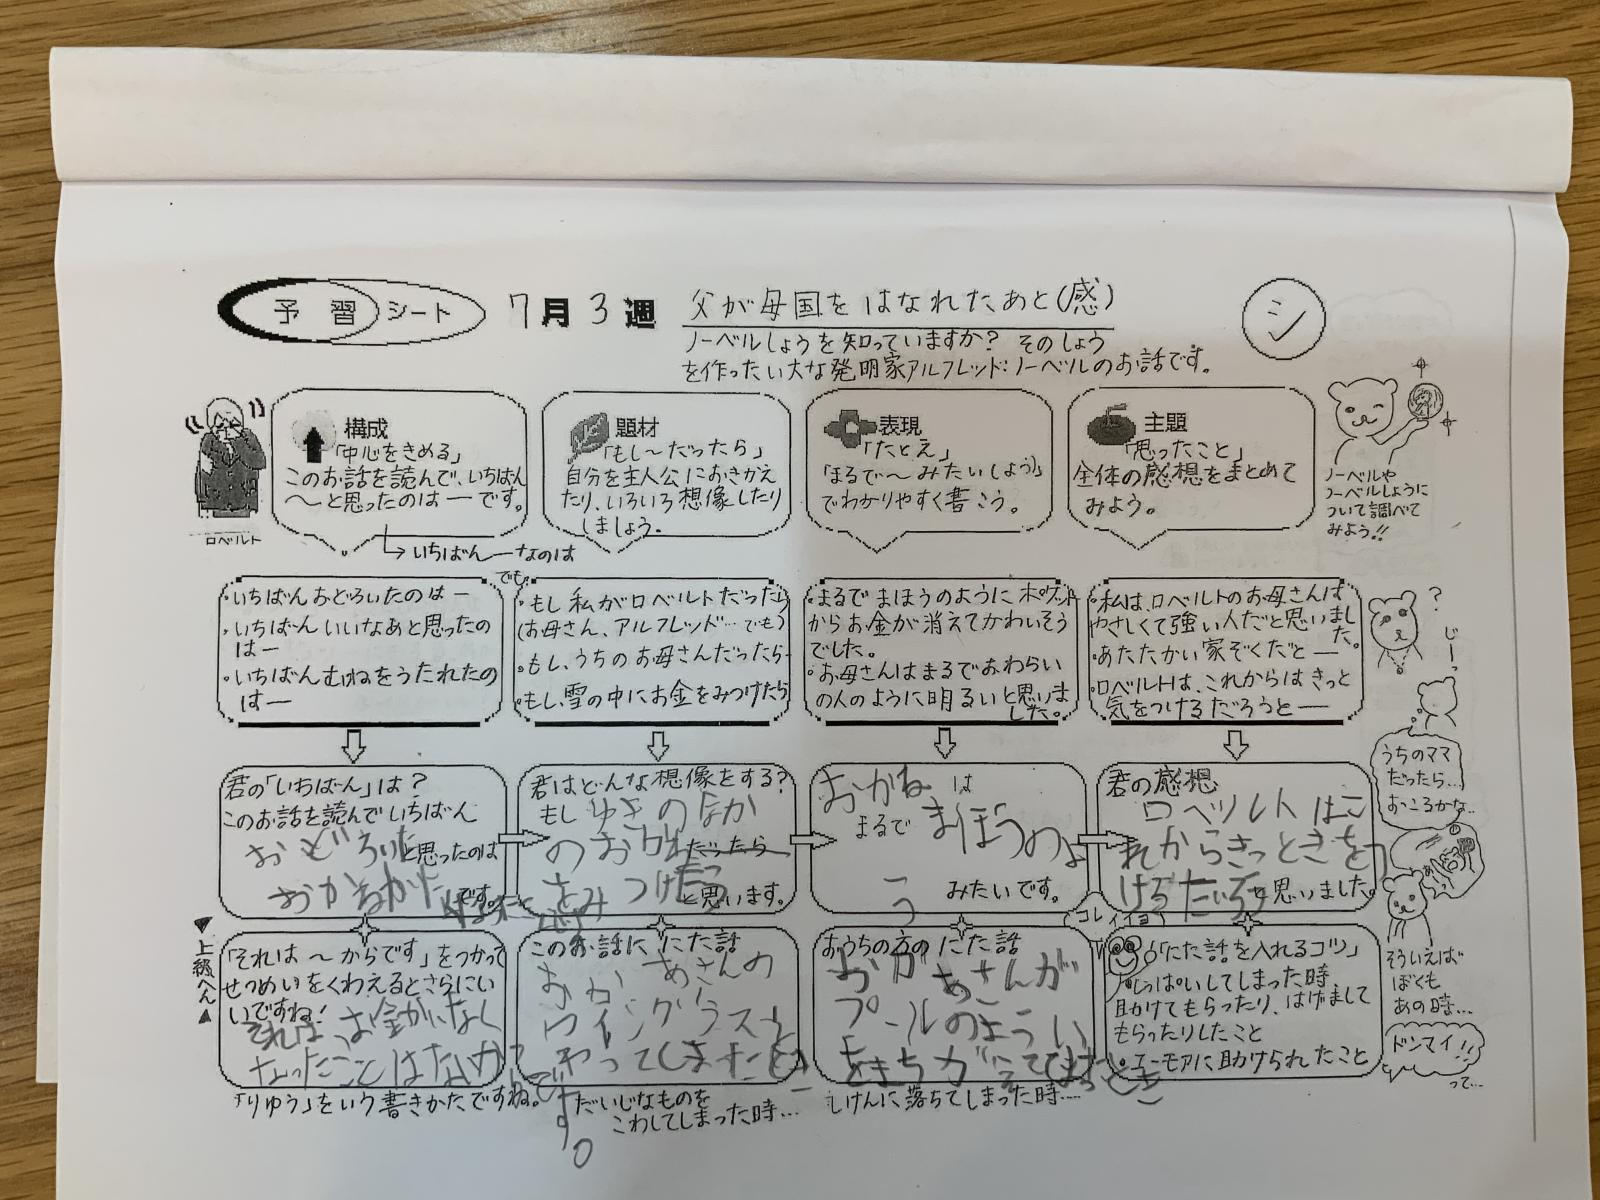 予習シート 7月3週 父が母国をはなれたあと(感)
シ
ノーベルしょうを知っていますか? そのしょう
を作ったい大な発明家アルフレッド・ノーベルのお話です。
ロベルト
構成
「中心をきめる」
このお話を読んで、いちばん
〜と思ったのは―です。
→いちばん―なのは
題材
「もし〜だったら」
自分を主人公におきかえ
たり、いろいろ想像したり
しましょう。
表現
「たとえ」
「まるで〜みたい(しょう)」
でわかりやすく書こう。
主題
「思ったこと」
全体の感想をまとめて
みよう。
ノーベルや
ノーベルしょうに
ついて調べて
みよう!!
・いちばんおどろいたのは―
・いちばんいいなあと思ったの
は―
・いちばんむねをうたれたの
は―
でも
・もし私がロベルトだったら
(お母さん、アルフレッド…でも)
・もし、うちのお母さんだったら―
・もし、雪の中にお金をみつけたら
・まるでまほうのようにポケット
からお金が消えてかわいそう
でした。
・お母さんはまるでおわらい
の人のように明るいと思いま
した。
・私は、ロベルトのお母さんは
やさしくて強い人だと思いまし
た。
・あたたかい家ぞくだと―
・ロベルトは、これからはきっと
気をつけるだろうと―
?
じーっ
うちのママ
だったら…
おこるかな…
君の「いちばん」は?
このお話を読んでいちばん
おどろいたと思ったのは
です。
君はどんな想像をする?
もし ゆきのなか
のおかねだったら
をみつけたら
と思います。
おかねは
まるで まほうのよ
う みたいです。
君の感想
ロベルトはこ
れからきっときをつ
けるだろうと思いました。
▼上級へん▲
「それは〜からです」をつかって
せつめいをくわえるとさらにい
いですね!
それは、お金がなく
なったことはないか
らです。
「りゆう」をいう書きかたですね。
このお話ににた話
おかあさんの
ワイングラスを
わってしまたとき
だいじなものを
こわしてしまった時…
おうちの方のにた話
おかあさんが
プールのようい
をまちがえてしまったとき
しけんに落ちてしまった時…
コレイイヨ
「にた話を入れるコツ」
・しっぱいしてしまった時
助けてもらったり、はげまして
もらったりしたこと
・ユーモアに助けられたこと
そういえば
ぼくも
あの時…
ドンマイ!!
って…